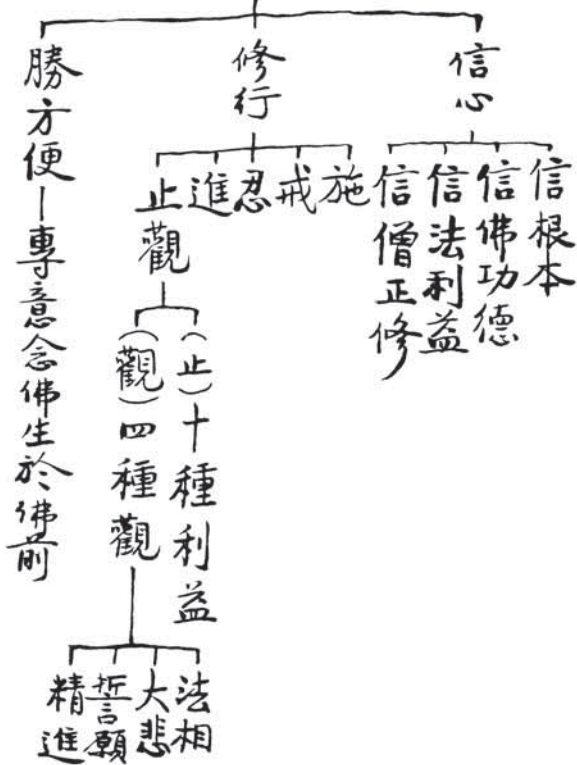 信心
信根本
信佛功德
信法利益
信僧正修
修行
施
戒
忍
進
止觀
(止)十種利益
(觀)四種觀
法相
大悲
誓願
精進
勝方便—專意念佛生於佛前